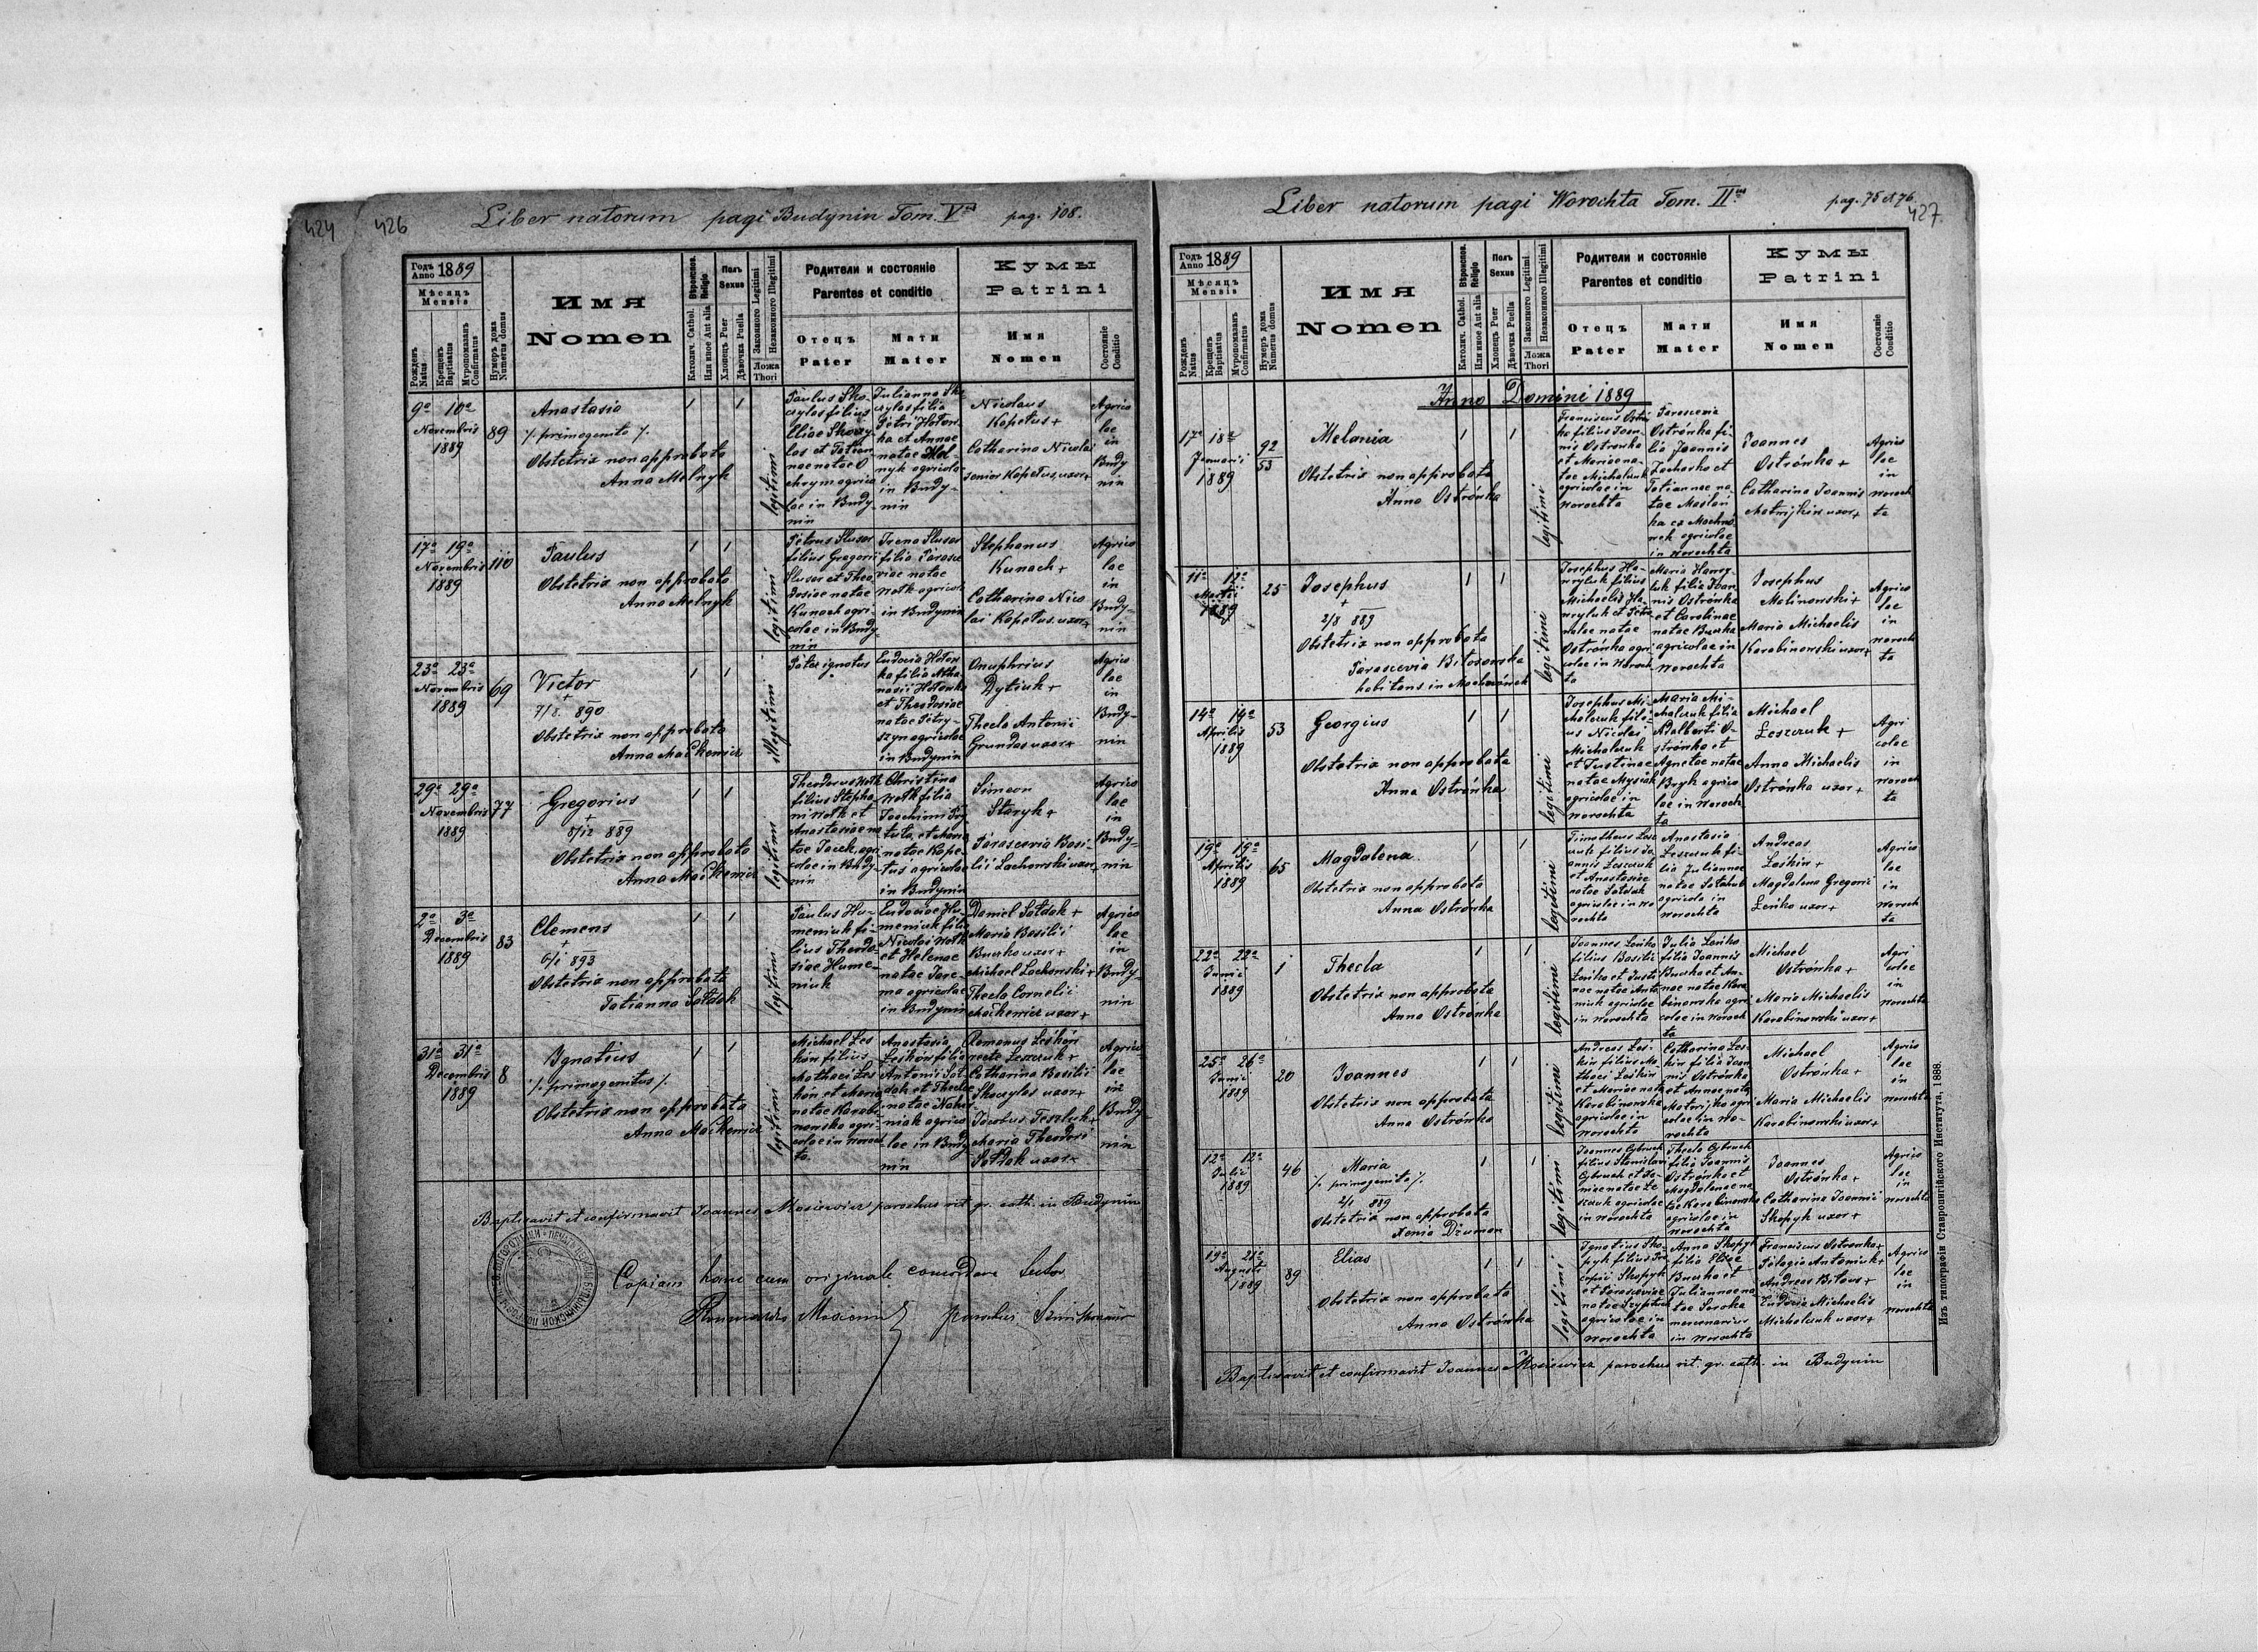 424
426
Liber natorum pagi Budynin Tom. V pag. 108.
Годъ Anno 1889
Мѣсяцъ
Mensis
Рожденъ Natus
Крещенъ Baptisatus
Муропомазанъ Confirmatus
Нумеръ дома Numerus domus
Имя
Nomen
Вѣроиспов. Religio
Католич. Cathol.
Или иное Aut alia
Полъ
Sexus
Хлопецъ Puer
Дѣвочка Puella
Законного Legitimi
Незаконного Illegitimi
Ложа
Thori
Родители и состояніе
Parentes et conditio
Отецъ
Pater
Мати
Mater
Кумы
Patrini
Имя
Nomen
Состояніе
Conditio
9a 10a
Novembris
1889
89
Anastasia
/. primogenita /.
Obstetrix non approbata
Anna Melnyk
legitimi
Paulus Sko-
czylas filius
Eliae Skoczy-
las et Tatian-
nae natae O-
chrym agrico
lae in Budy-
nin
Julianna Sko
czylas filia
Petri Hołow-
ka et Annae
natae Mel-
nyk agricolae
in Budy-
nin
Nicolaus
Kopetus +
Catharina Nicolai
senior Kopetus uxor +
Agrico
lae
in
Budy
nin
17a 19a
Novembris
1889
110
Paulus
Obstetrix non approbata
Anna Melnyk
legitimi
Petrus Slusar
filius Gregorii
Slusar et Theo
dosiae natae
Kunach agri-
colae in Budy-
nin
Irena Slusar
filia Parasce
viae natae
Wołk agricolae
in Budynin
Stephanus
Kunach +
Catharina Nico
lai Kopetus uxor +
Agrico
lae
in
Budy-
nin
23a 23a
Novembris
1889
69
Victor
+
7/8. 890
Obstetrix non approbata
Anna Maćkewicz
illegitimi
Pater ignotus
Eudocia Hołow
ka filia Atha
nasii Hołowka
et Theodosiae
natae Petry-
szyn agricolae
in Budynin
Onuphrius
Dytiuk +
Thecla Antonii
Grundas uxor +
Agrico
lae
in
Budy-
nin
29a 29a
Novembris
1889
77
Gregorius
+
8/12 889
Obstetrix non approbata
Anna Maćkewicz
legitimi
Theodorus Wołk
filius Stepha-
ni Wołk et
Anastasiae na
tae Jacek, agri
colae in Budy-
nin
Christina
Wołk filia
natae Kope-
tus agricolae
in Budynin
Simeon
Staryk +
Parascevia Basi-
lii Lachowski uxor +
Agrico
lae
in
Budy-
nin
2a 3a
Decembris
1889
83
Clemens
+
6/1 893
Obstetrix non approbata
Tatianna Sołdak
legitimi
Paulus Hu-
meniuk fi-
lius Theodo-
siae Hume-
niuk
Eudociae Hu-
meniuk filia
Nicolai Wołk
et Helenae
natae Jare-
ma agricolae
in Budynin
Daniel Sołdak +
Maria Basilii
Burko uxor +
Michael Lachowski +
Thecla Cornelii
Maćkewicz uxor +
Agrico
lae
in
Budy-
nin
31a 31a
Decembris
1889
8
Ignatius
/. primogenitus /.
Obstetrix non approbata
Anna Maćkewicz
legitimi
Michael Les
kon filius
Mathaei Les
kon et Maria
natae Karabi-
nowska agri-
colae in Woroch
ta.
Anastasia
Leśkow filia
Antonii Soł-
dak et Theclae
natae
niak agrico
lae in Budy
nin
Clemens
recte Leszczuk +
Catharina Basilii
Skoczylas uxor +
Jacobus
Maria Theodori
Sołdak uxor +
Agrico-
lae
in
Budy-
nin
Baptisavit et confirmavit Joannes Mosiewicz parochus rit. gr. cath. in Budynin
Copiam hanc cum originale concordare testor
parochus
Liber natorum pagi Worochta Tom. II pag. 75 et 76
427
Годъ Anno 1889
Мѣсяцъ
Mensis
Рожденъ Natus
Крещенъ Baptisatus
Муропомазанъ Confirmatus
Нумеръ дома Numerus domus
Имя
Nomen
Вѣроиспов. Religio
Католич. Cathol.
Или иное Aut alia
Полъ
Sexus
Хлопецъ Puer
Дѣвочка Puella
Законного Legitimi
Незаконного Illegitimi
Ложа
Thori
Родители и состояніе
Parentes et conditio
Отецъ
Pater
Мати
Mater
Кумы
Patrini
Имя
Nomen
Состояніе
Conditio
Anno Domini 1889
17a 18a
Januarii
1889
92
53
Melania
Obstetrix non approbata
Anna Ostrówka
legitimi
Franciscus Ostrów
ka filius Joan-
nis Ostrowka
et Mariae na-
tae Michalczuk
agricolae in
Worochta
Parascevia
Ostrówka fi-
lia Joannis
Zacharko et
Tatiannae na
tae Maślan
ka ex Machnó
wek agricolae
in Worochta
Joannes
Ostrówka +
Catharina Joannis
Matwijkiw uxor +
Agrico
lae
in
Woroch
ta
11a 12a
Martii
1889
25
Josephus
+
2/8 889
Obstetrix non approbata
Parascevia Bitosowska
habitans in Machnówek
legitimi
Josephus Ha-
wryluk filius
Michaelis Ha
wryluk et Petro
nelae natae
Ostrówka agri
colae in Woroch
ta
Maria Hawry
luk filia Joan
nis Ostrówka
et Carolinae
natae Burka
agricolae in
Worochta
Josephus
Malinowski +
Maria Michaelis
Karabinowski uxor +
Agrico
lae
in
Woroch
ta
14a 14a
Aprilis
1889
53
Georgius
Obstetrix non approbata
Anna Ostrówka
legitimi
Josephus Mi-
chalczuk fili-
us Nicolai
Michalczuk
et Justinae
natae Mysiak
agricolae in
Worochta
Maria Mi-
chalczuk filia
Adalberti O-
strówka et
Agnetae natae
Bryk agrico
lae in Woroch
ta
Michael
Leszczuk +
Anna Michaelis
Ostrówka uxor +
Agri
colae
in
Woroch
ta
19a 19a
Aprilis
1889
65
Magdalena
Obstetrix non approbata
Anna Ostrówka
legitimi
Timotheus Lesz
czuk filius Jo
annis Leszczuk
et Anastasiae
natae Sołdak
agricolae in Wo
rochta
Anastasia
Leszczuk fi-
lia Juliannae
natae Sołohub
agricolae in
Worochta
Andreas
Leśkiw +
Magdalena Gregorii
Leńko uxor +
Agrico
lae
in
Woroch
ta
22a 22a
Junii
1889
1
Thecla
Obstetrix non approbata
Anna Ostrówka
legitimi
Joannes Leńko
filius Basilii
Leńko et Justi
nae natae Anto
niuk agricolae
in Worochta
Julia Leńko
filia Joannis
Burka et An-
nae natae Kara
binowska agri
colae in Woroch
ta
Michael
Ostrówka +
Maria Michaelis
Karabinowski uxor +
Agri
colae
in
Worochta
25a 26a
Junii
1889
20
Joannes
Obstetrix non approbata
Anna Ostrówka
legitimi
Andreas Leś-
kiw filius Ma
thaei Leśkiw
et Mariae nata
Karabinowska
agricolae in
Worochta
Catharina Les-
kiw filia Joan
nis Ostrówka
et Annae nata
Matwijko agri
colae in Wo-
rochta
Michael
Ostrówka +
Maria Michaelis
Karabinowski uxor +
Agrico
lae
in
Worochta
12a 12a
Julii
1889
46
Maria
/. primogenita /.
2/1 889
Obstetrix non approbata
Xenia Dżuman
legitimi
Joannes Cybruch
filius Stanislai
Cybruch et
natae Le
szczuk agricolae
in Worochta
Thecla Cybruch
filia Joannis
Ostrówka et
Magdalenae na
tae Karabinowska
agricolae in
Worochta
Joannes
Ostrówka +
Catharina Joannis
Skopyk uxor +
Agrico
lae
in
Worochta
19a 21a
Augusti
1889
89
Elias
Obstetrix non approbata
Anna Ostrówka
legitimi
Ignatius Sko-
pyk filius Pro
copii Skopyk
et Parasceviae
natae
agricolae in
Worochta
Anna Skopyk
filia Eliae
Burka et
Juliannae na
tae Soroka
mercenarius
in Worochta
Franciscus Ostrowka +
Pelagia Antoniuk +
Andreas Bilous +
Eudocia Michaelis
Michalczuk uxor +
Agrico
lae
in
Worochta
Baptisavit et confirmavit Joannes Mosiewicz parochus rit. gr. cath. in Budynin
Изъ типографіи Ставропигійского Института, 1888.